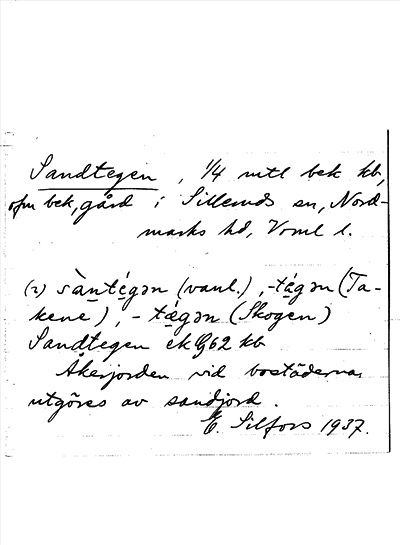 Sandtegen, 1/4 mtl bek kb,
ofm bek, gård i Silleruds sn, Nord-
marks hd, Vrml l.
(2) sàntégən (vanl.), -tä́gən (Ta-
kene), -tǽgən (Skogen)
Sandtegen ek G62 kb
Åkerjorden vid bostäderna
utgöres av sandjord.
E. Silfors 1937.